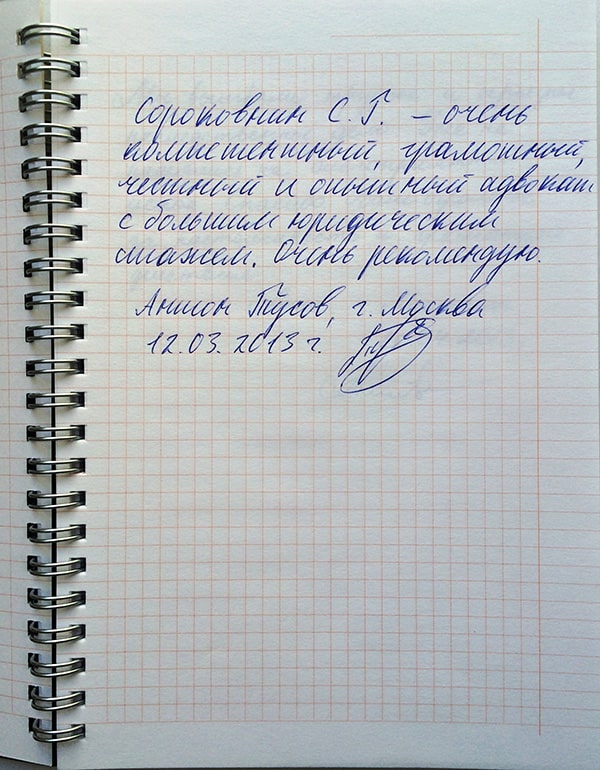 Сороковнин С. Г. – очень
компетентный, грамотный,
честный и опытный адвокат
с большим юридическим
стажем. Очень рекомендую.
Антон Тусов, г. Москва
12.03.2013 г.